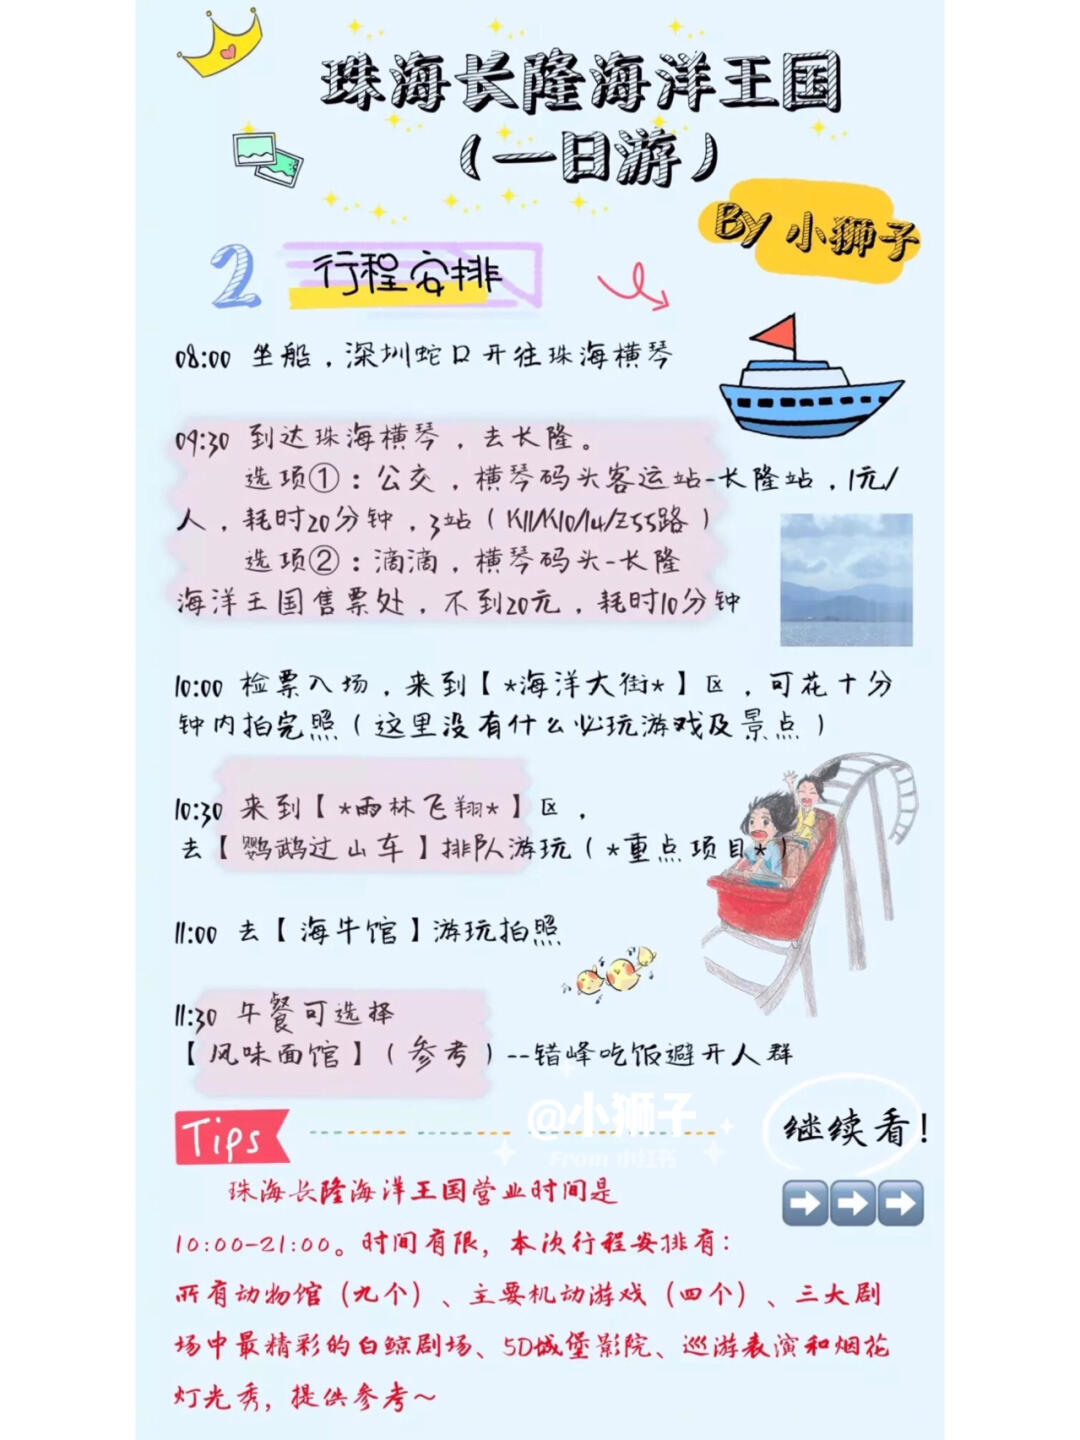 珠海长隆海洋王国
（一日游）
By 小狮子
2 行程安排
08:00 坐船，深圳蛇口开往珠海横琴
09:30 到达珠海横琴，去长隆。
选项①：公交，横琴码头客运站-长隆站，1元/
人，耗时20分钟，3站（K11/K10/14/Z55路）
选项②：滴滴，横琴码头-长隆
海洋王国售票处，不到20元，耗时10分钟
10:00 检票入场，来到【*海洋大街*】区，可花十分
钟内拍完照（这里没有什么必玩游戏及景点）
10:30 来到【*雨林飞翔*】区，
去【鹦鹉过山车】排队游玩（*重点项目*）
11:00 去【海牛馆】游玩拍照
11:30 午餐可选择
【风味面馆】（参考）--错峰吃饭避开人群
@小狮子
From 小红书
Tips
继续看！
珠海长隆海洋王国营业时间是
10:00-21:00。时间有限，本次行程安排有：
所有动物馆（九个）、主要机动游戏（四个）、三大剧
场中最精彩的白鲸剧场、5D城堡影院、巡游表演和烟花
灯光秀，提供参考～